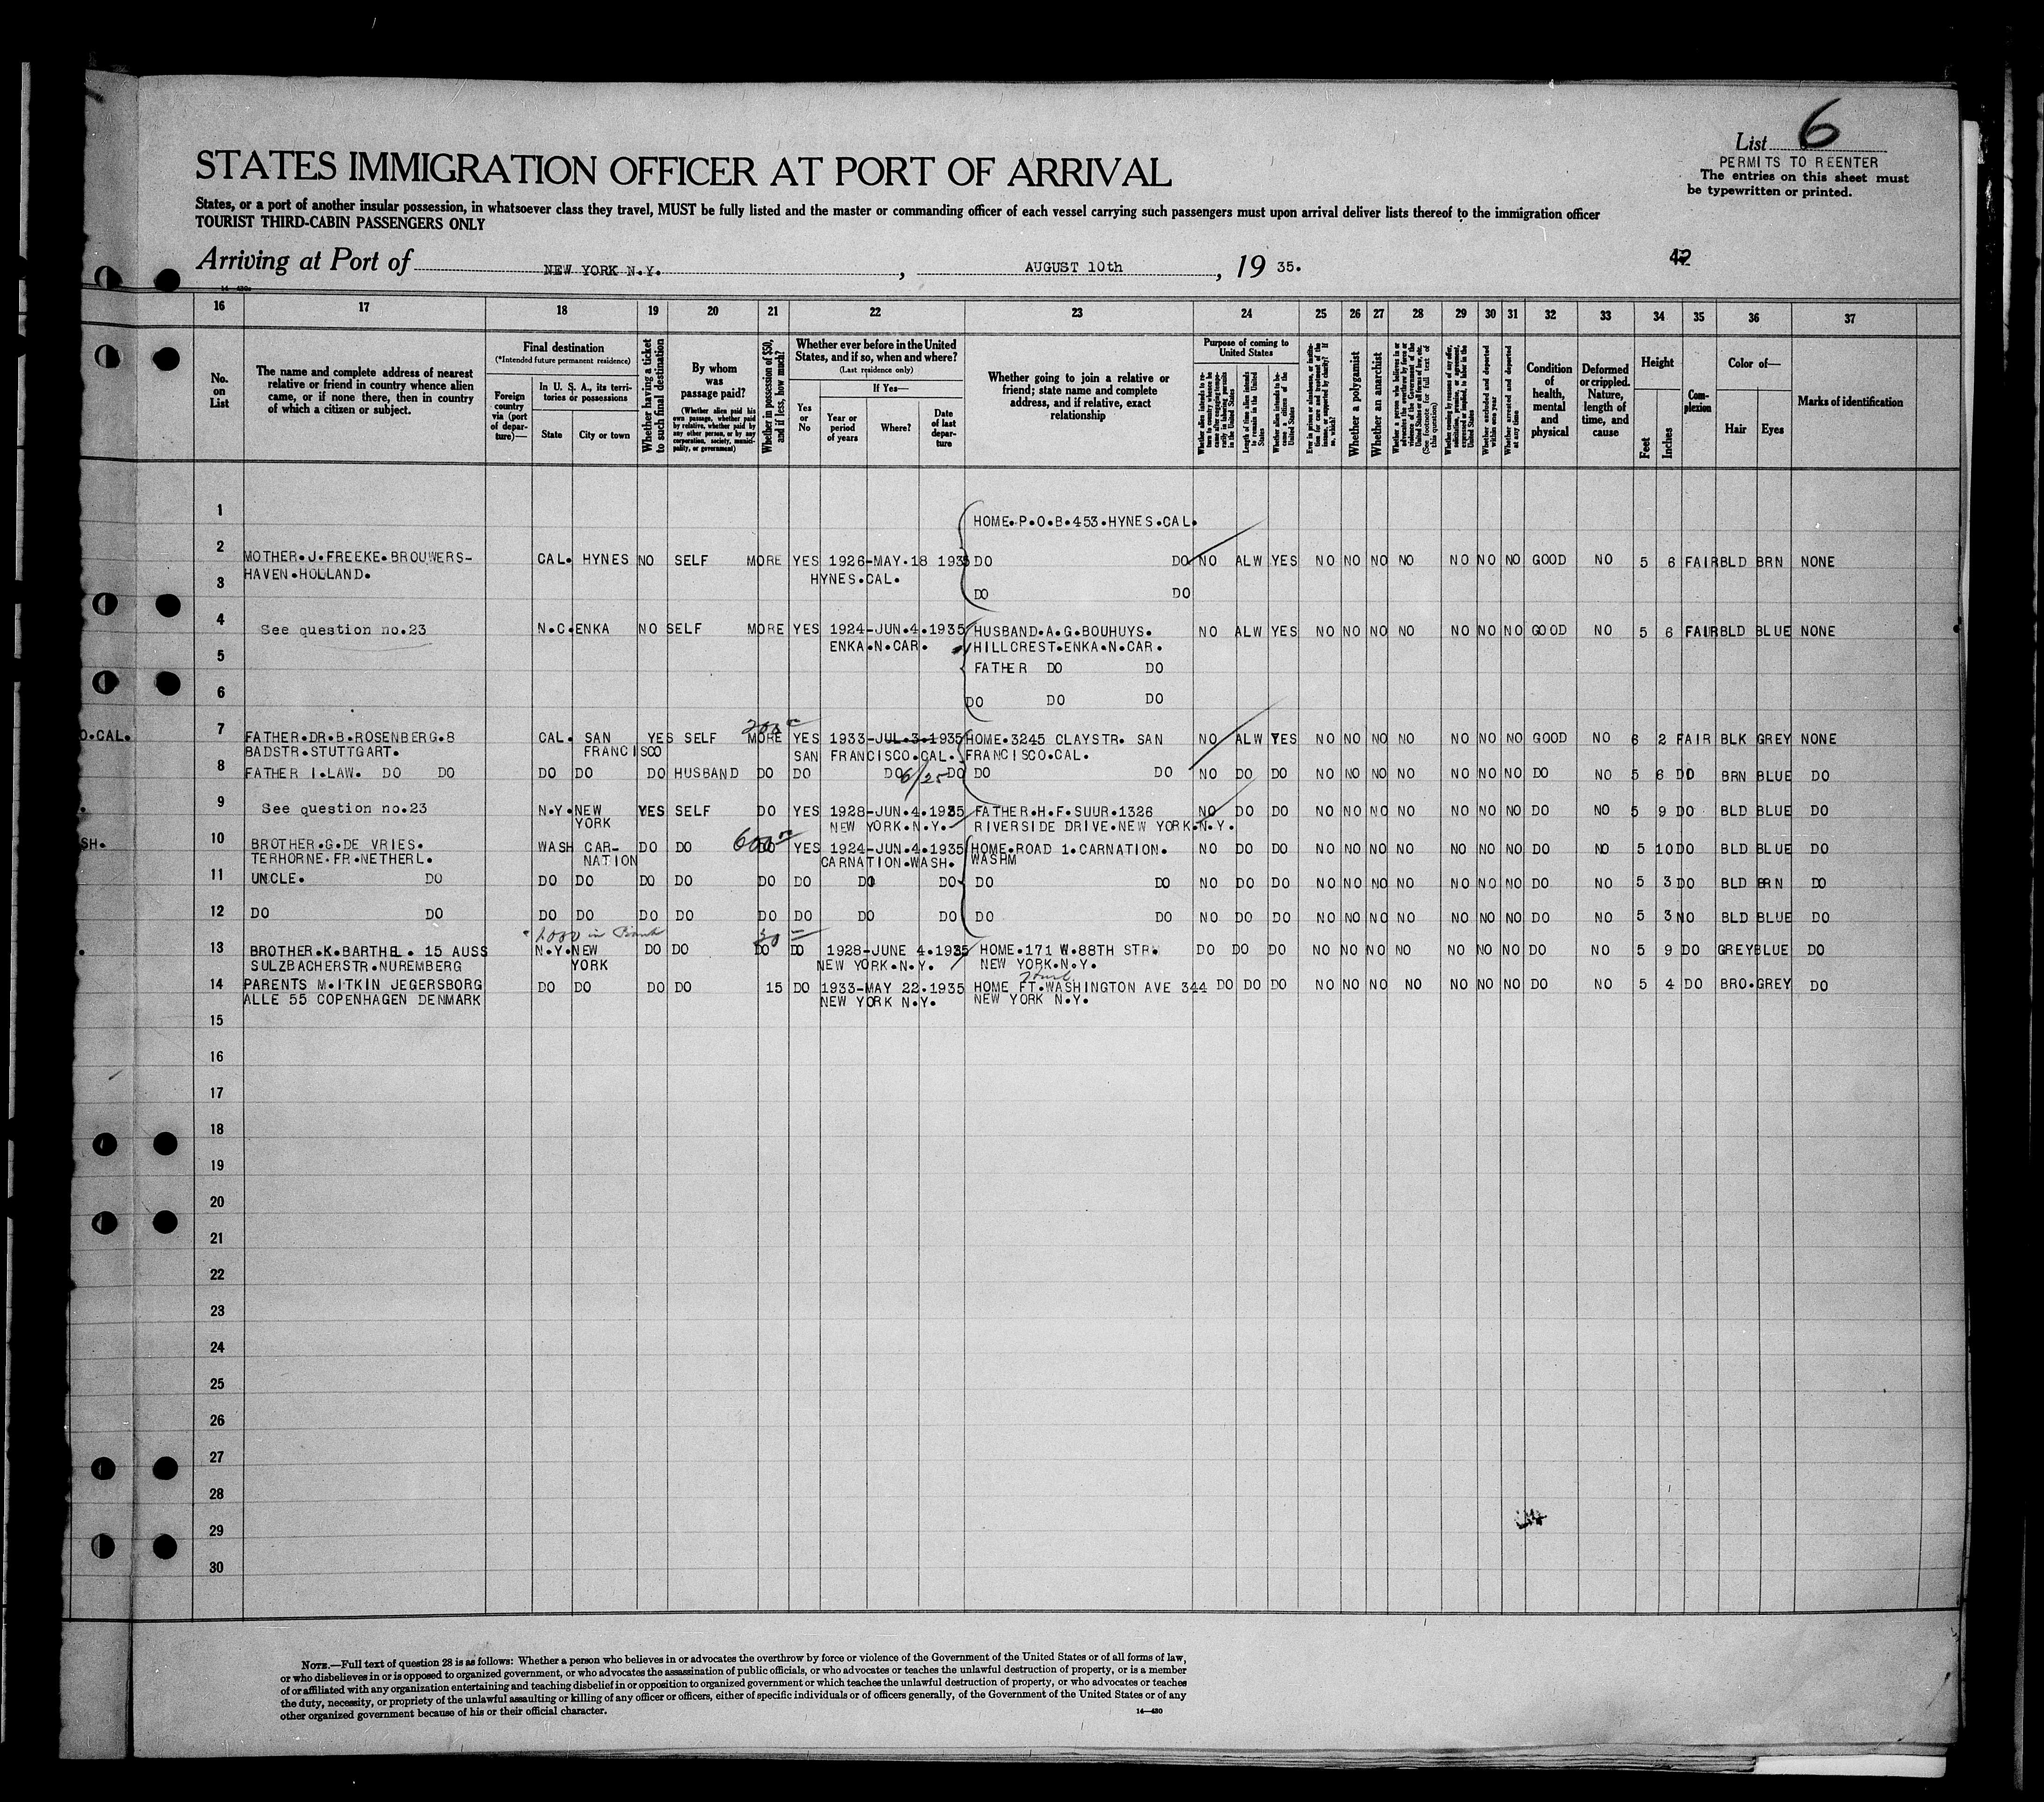 List 6
PERMITS TO REENTER
The entries on this sheet must
be typewritten or printed.
STATES IMMIGRATION OFFICER AT PORT OF ARRIVAL
States, or a port of another insular possession, in whatsoever class they travel, MUST be fully listed and the master or commanding officer of each vessel carrying such passengers must upon arrival deliver lists thereof to the immigration officer
TOURIST THIRD-CABIN PASSENGERS ONLY
Arriving at Port of NEW YORK N.Y., AUGUST 10th, 19 35.
42
16 17 18 19 20 21 22 23 24 25 26 27 28 29 30 31 32 33 34 35 36 37
No. on List
The name and complete address of nearest relative or friend in country whence alien came, or if none there, then in country of which a citizen or subject.
Final destination
(*Intended future permanent residence)
Foreign country via (port of departure)—
In U. S. A., its territories or possessions
State
City or town
Whether having a ticket to such final destination
By whom was passage paid?
(Whether alien paid his own passage, whether paid by relative, whether paid by any other person, or by any corporation, society, municipality, or government)
Whether in possession of $50, and if less, how much?
Whether ever before in the United States, and if so, when and where?
(Last residence only)
Yes or No
If Yes—
Year or period of years
Where?
Date of last departure
Whether going to join a relative or friend; state name and complete address, and if relative, exact relationship
Purpose of coming to United States
Length of time alien intends to remain in the United States
Whether alien intends to become a citizen of the United States
Whether a polygamist
Whether an anarchist
Whether arrested and deported at any time
Condition of health, mental and physical
Deformed or crippled. Nature, length of time, and cause
Height
Feet
Inches
Complexion
Color of—
Hair
Eyes
Marks of identification
1 HOME.P.O.B.453.HYNES.CAL.
2 MOTHER.J.FREEKE.BROUWERS- CAL. HYNES NO SELF MORE YES 1926-MAY.18 1935 DO DO NO ALW YES NO NO NO NO NO NO NO GOOD NO 5 6 FAIR BLD BRN NONE
HAVEN.HOLLAND. HYNES.CAL.
3 DO DO
4 See question no.23 N.C. ENKA NO SELF MORE YES 1924-JUN.4.1935 HUSBAND.A.G.BOUHUYS. NO ALW YES NO NO NO NO NO NO NO GOOD NO 5 6 FAIR BLD BLUE NONE
ENKA.N.CAR. HILLCREST.ENKA.N.CAR.
5 FATHER DO DO
6 DO DO DO
O.CAL. 7 FATHER.DR.B.ROSENBERG.8 CAL. SAN YES SELF MORE YES 1933-JUL.3.1935 HOME.3245 CLAYSTR. SAN NO ALW YES NO NO NO NO NO NO NO GOOD NO 6 2 FAIR BLK GREY NONE
BADSTR.STUTTGART. FRANCISCO SAN FRANCISCO.CAL. FRANCISCO.CAL.
6/25
8 FATHER I.LAW. DO DO DO DO DO HUSBAND DO DO DO DO DO DO NO DO DO NO NO NO NO NO NO NO DO NO 5 6 DO BRN BLUE DO
9 See question no.23 N.Y. NEW YES SELF DO YES 1928-JUN.4.1935 FATHER.H.F.SUUR.1326 NO DO DO NO NO NO NO NO NO NO DO NO 5 9 DO BLD BLUE DO
YORK NEW YORK.N.Y. RIVERSIDE DRIVE.NEW YORK.N.Y.
SH. 10 BROTHER.G.DE VRIES. WASH CAR- DO DO 600 DO YES 1924-JUN.4.1935 HOME.ROAD 1.CARNATION. NO DO DO NO NO NO NO NO NO NO DO NO 5 10 DO BLD BLUE DO
TERHORNE.FR.NETHERL. NATION CARNATION.WASH. WASHM
11 UNCLE. DO DO DO DO DO DO DO DO DO DO DO NO DO DO NO NO NO NO NO NO NO DO NO 5 3 DO BLD BRN DO
12 DO DO DO DO DO DO DO DO DO DO DO DO NO DO DO NO NO NO NO NO NO NO DO NO 5 3 NO BLD BLUE DO
1000 in Bank 50
13 BROTHER.K.BARTHEL. 15 AUSS N.Y. NEW DO DO DO DO 1928-JUNE 4.1935 HOME.171 W.88TH STR. DO DO DO NO NO NO NO NO NO NO DO NO 5 9 DO GREY BLUE DO
SULZBACHERSTR.NUREMBERG YORK NEW YORK.N.Y. NEW YORK.N.Y.
14 PARENTS M.ITKIN JEGERSBORG DO DO DO DO 15 DO 1933-MAY 22.1935 HOME FT.WASHINGTON AVE 344 DO DO DO NO NO NO NO NO NO NO DO NO 5 4 DO BRO. GREY DO
ALLE 55 COPENHAGEN DENMARK NEW YORK N.Y. NEW YORK N.Y.
15
16
17
18
19
20
21
22
23
24
25
26
27
28
29
30
NOTE.—Full text of question 28 is as follows: Whether a person who believes in or advocates the overthrow by force or violence of the Government of the United States or of all forms of law,
or who disbelieves in or is opposed to organized government, or who advocates the assassination of public officials, or who advocates or teaches the unlawful destruction of property, or is a member
of or affiliated with any organization entertaining and teaching disbelief in or opposition to organized government or which teaches the unlawful destruction of property, or who advocates or teaches
the duty, necessity, or propriety of the unlawful assaulting or killing of any officer or officers, either of specific individuals or of officers generally, of the Government of the United States or of any
other organized government because of his or their official character.
14—430